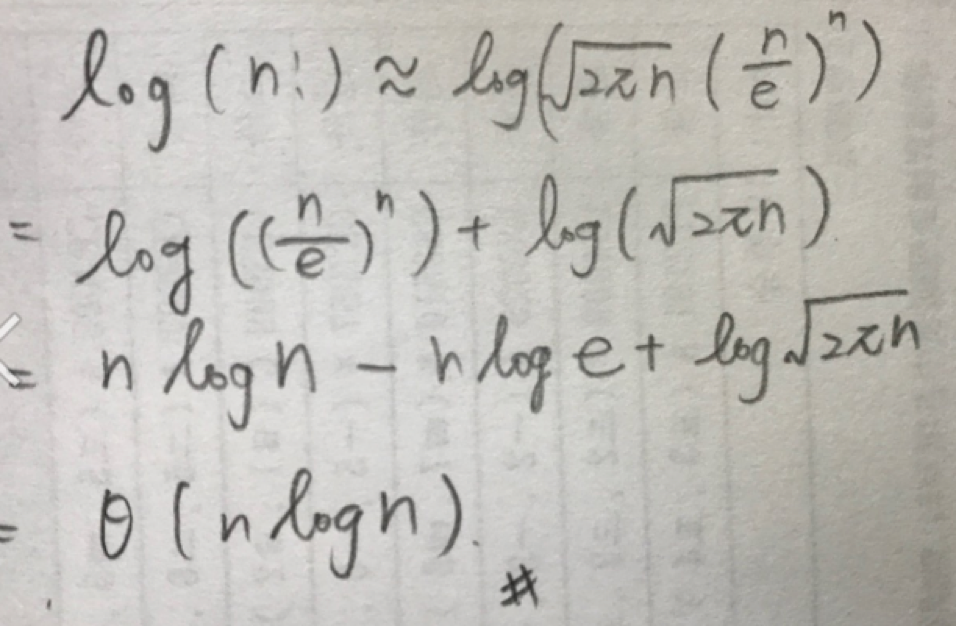 log (n!) ≈ log(√2πn (n/e)^n)
= log ((n/e)^n) + log(√2πn)
= n log n − n log e + log √2πn
= θ (n log n). #